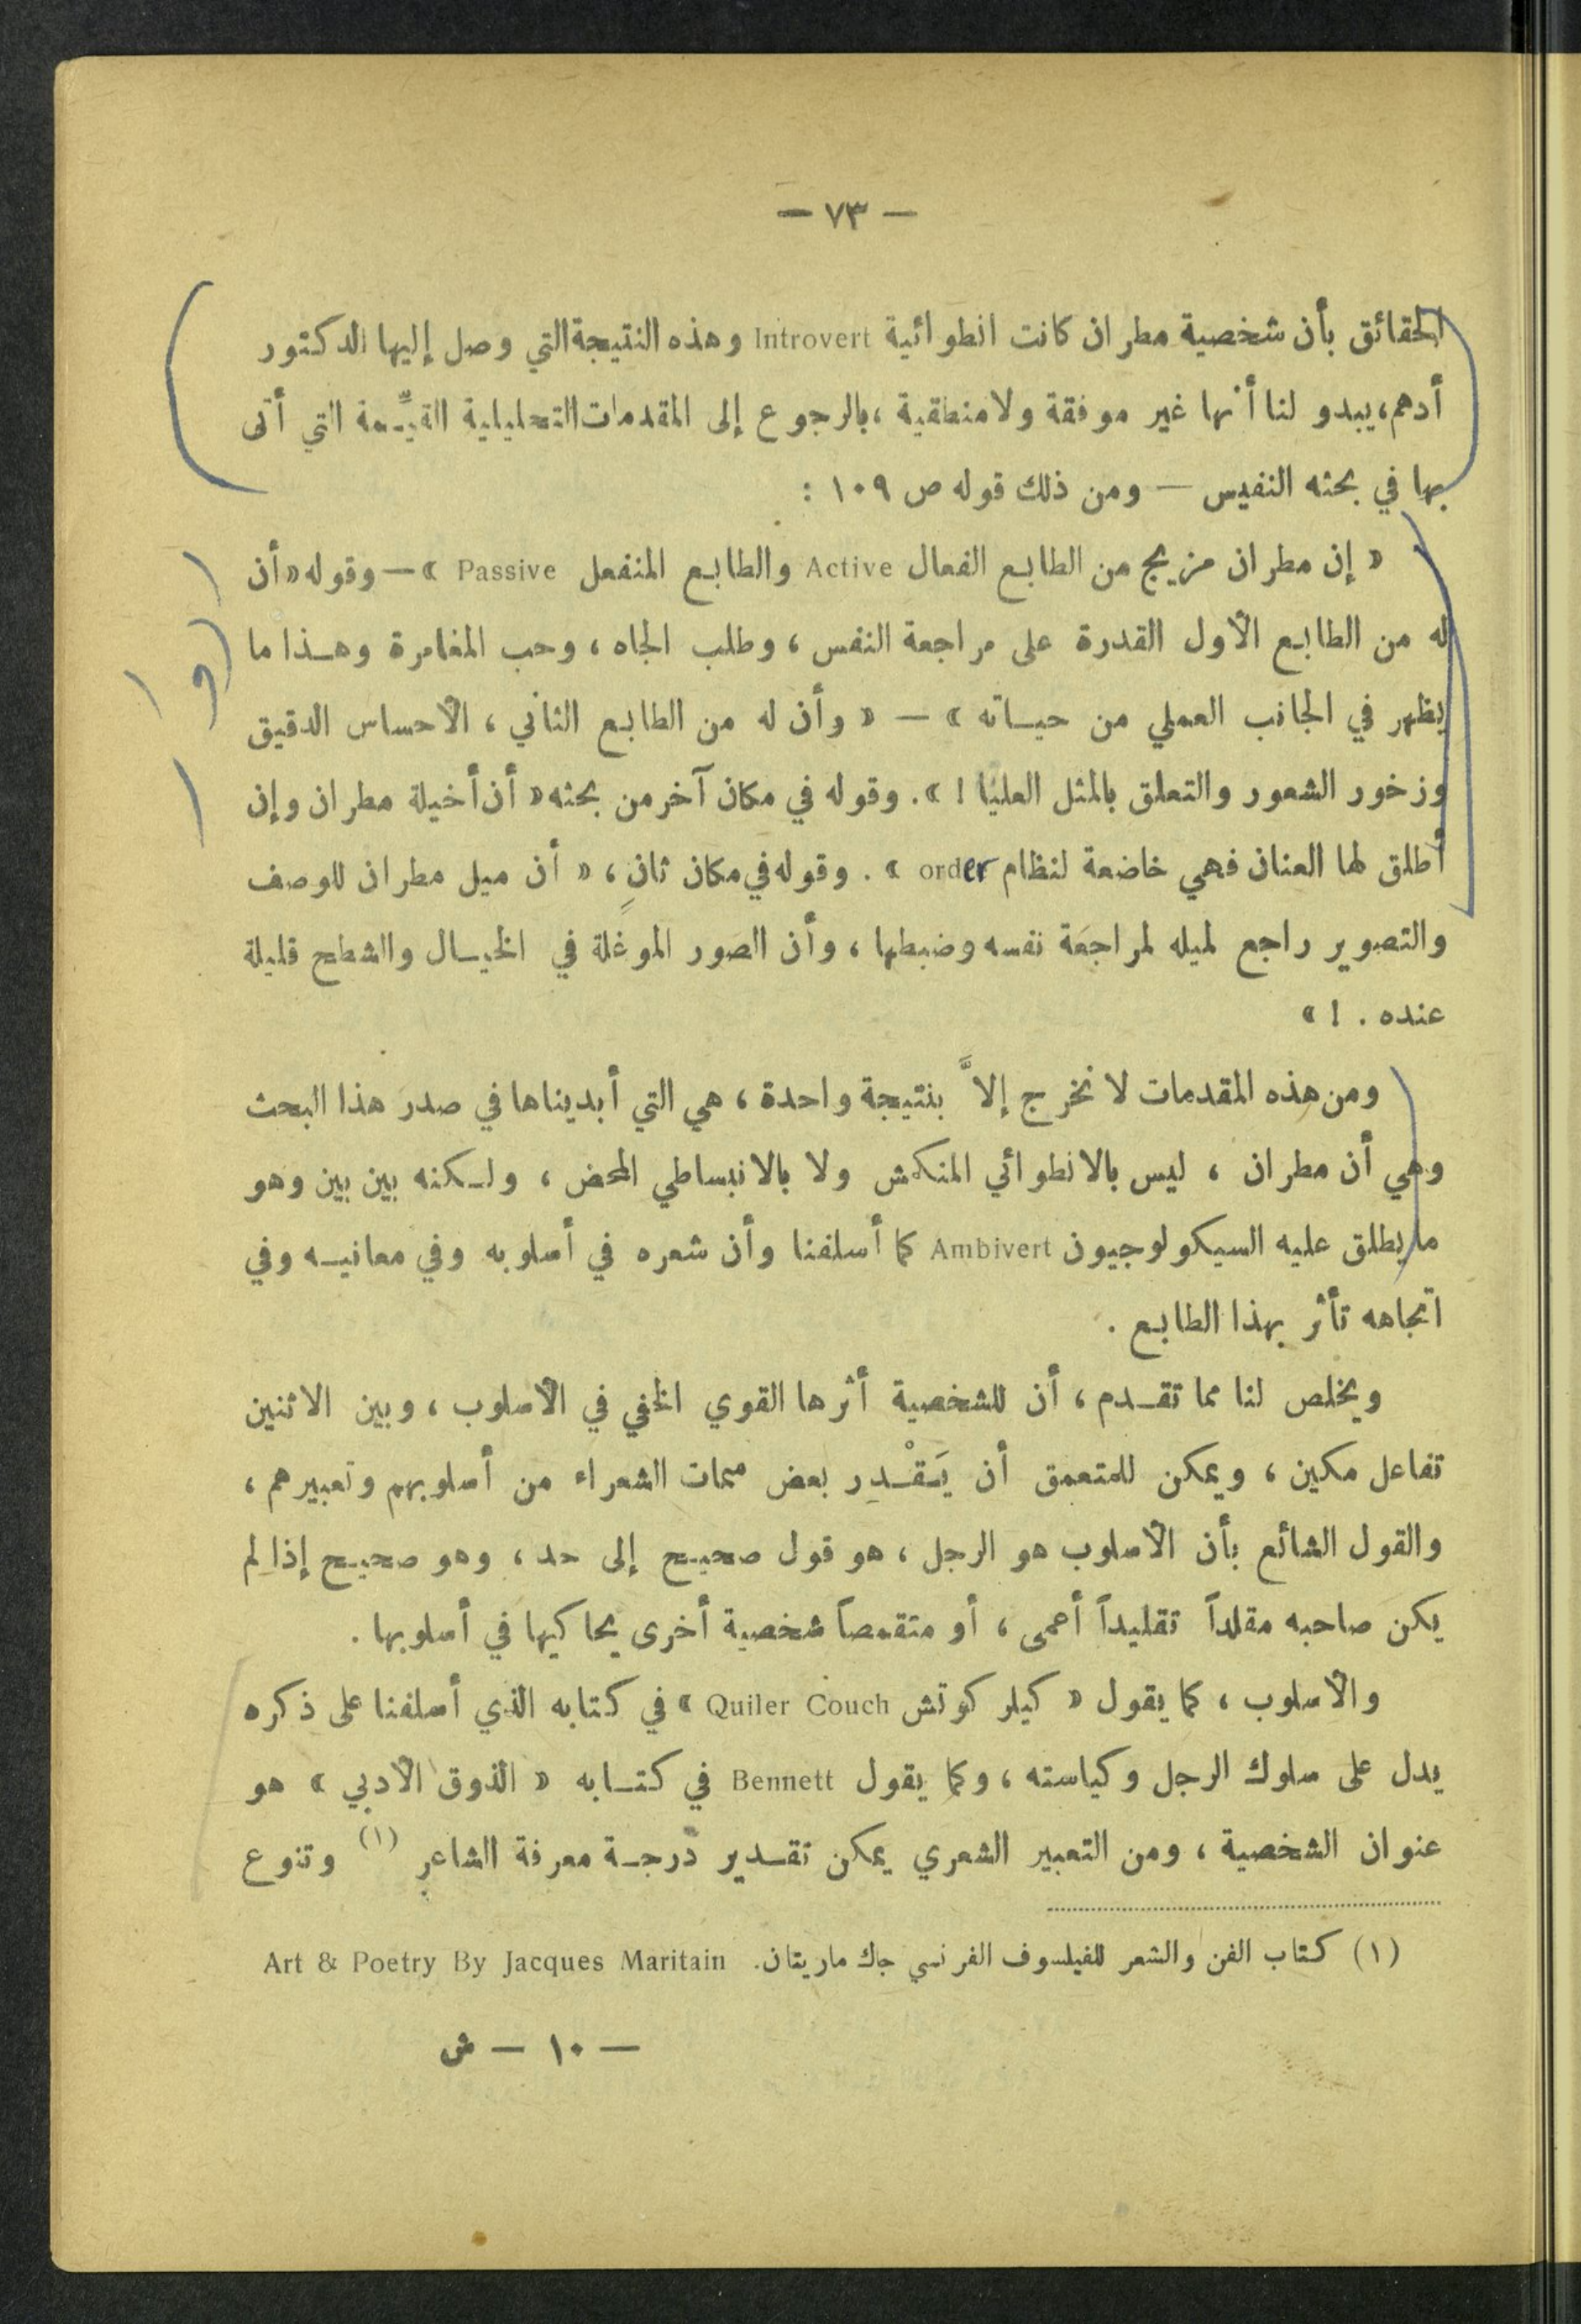 — ٧٣ —
الحقائق بأن شخصية مطران كانت انطوائية Introvert وهذه النتيجة التي وصل إليها الدكتور
أدهم، يبدو لنا أنها غير موفقة ولا منطقية، بالرجوع إلى المقدمات التحليلية القيِّمة التي أتى
بها في بحثه النفيس — ومن ذلك قوله ص ١٠٩ :
« إن مطران مزيج من الطابع الفعال Active والطابع المنفعل Passive » — وقوله « أن
له من الطابع الأول القدرة على مراجعة النفس ، وطلب الجاه ، وحب المغامرة وهذا ما
يظهر في الجانب العملي من حياته » — « وأن له من الطابع الثاني ، الأحساس الدقيق
وزخور الشعور والتعلق بالمثل العليا ! » . وقوله في مكان آخر من بحثه « أن أخيلة مطران وإن
أطلق لها العنان فهي خاضعة لنظام order » . وقوله في مكان ثانٍ ، « أن ميل مطران للوصف
والتصوير راجع لميله لمراجعة نفسه وضبطها ، وأن الصور الموغلة في الخيال والشطح قليلة
عنده . ! »
ومن هذه المقدمات لا نخرج إلاَّ بنتيجة واحدة ، هي التي أبديناها في صدر هذا البحث
وهي أن مطران ، ليس بالانطوائي المنكمش ولا بالانبساطي المحض ، ولكنه بين بين وهو
ما يطلق عليه السيكولوجيون Ambivert كما أسلفنا وأن شعره في أسلوبه وفي معانيه وفي
اتجاهه تأثر بهذا الطابع .
ويخلص لنا مما تقدم ، أن للشخصية أثرها القوي الخفي في الأسلوب ، وبين الاثنين
تفاعل مكين ، ويمكن للمتعمق أن يَقْدِر بعض سمات الشعراء من أسلوبهم وتعبيرهم ،
والقول الشائع بأن الأسلوب هو الرجل ، هو قول صحيح إلى حد ، وهو صحيح إذا لم
يكن صاحبه مقلداً تقليداً أعمى ، أو متقمصاً شخصية أخرى يحاكيها في أسلوبها .
والأسلوب ، كما يقول « كيلر كوتش Quiler Couch » في كتابه الذي أسلفنا على ذكره
يدل على سلوك الرجل وكياسته ، وكما يقول Bennett في كتابه « الذوق الأدبي » هو
عنوان الشخصية ، ومن التعبير الشعري يمكن تقدير درجة معرفة الشاعر (١) وتنوع
(١) كتاب الفن والشعر للفيلسوف الفرنسي جاك ماريتان. Art & Poetry By Jacques Maritain
— ١٠ — ش